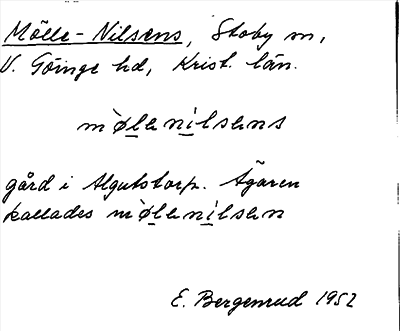 Mölle-Nilsens, Stoby sn,
V. Göinge hd, Krist. län.
mø̀lenìlsens
gård i Algutstorp. Ägaren
kallades mø̀lenìlsen
E. Bergenrud 1952